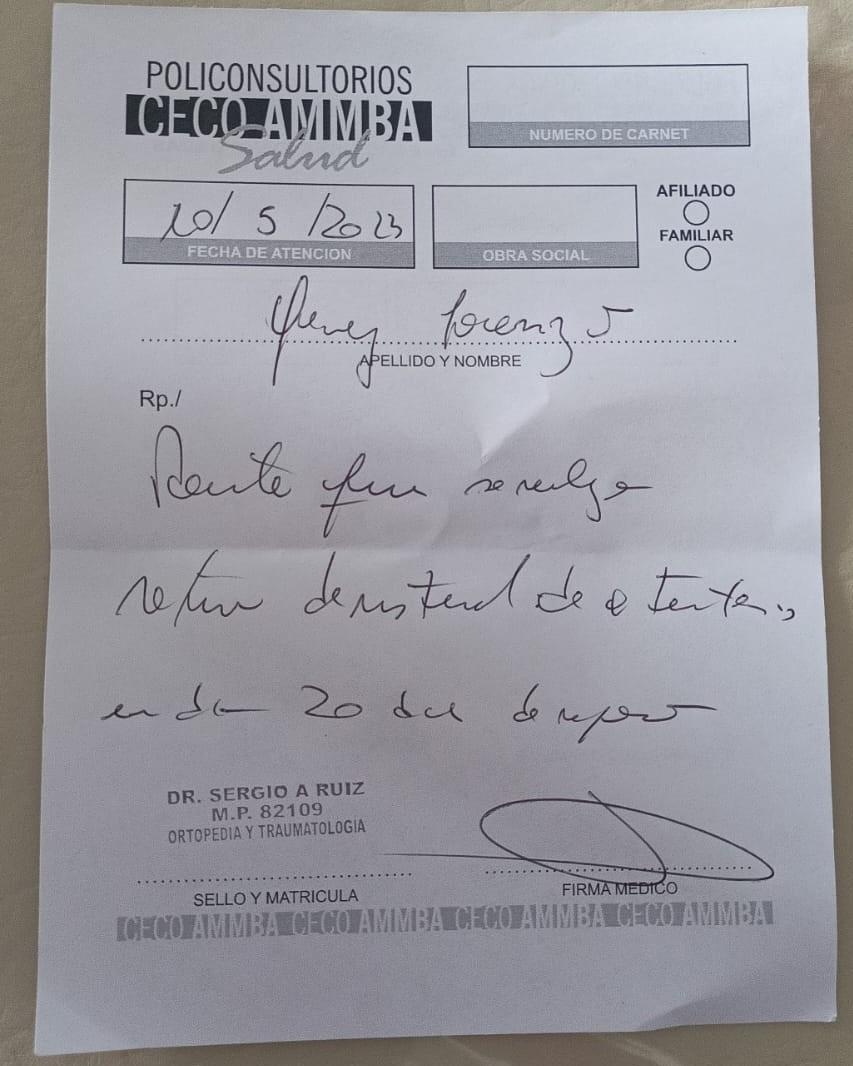 POLICONSULTORIOS
CECO AMMBA
Salud
NUMERO DE CARNET
10/ 5 /2023
FECHA DE ATENCION
OBRA SOCIAL
AFILIADO
FAMILIAR
Lorenzo
APELLIDO Y NOMBRE
Rp./
Paciente que se realiza
retiro de material de
20 de
DR. SERGIO A RUIZ
M.P. 82109
ORTOPEDIA Y TRAUMATOLOGIA
SELLO Y MATRICULA
FIRMA MEDICO
CECO AMMBA CECO AMMBA CECO AMMBA CECO AMMBA